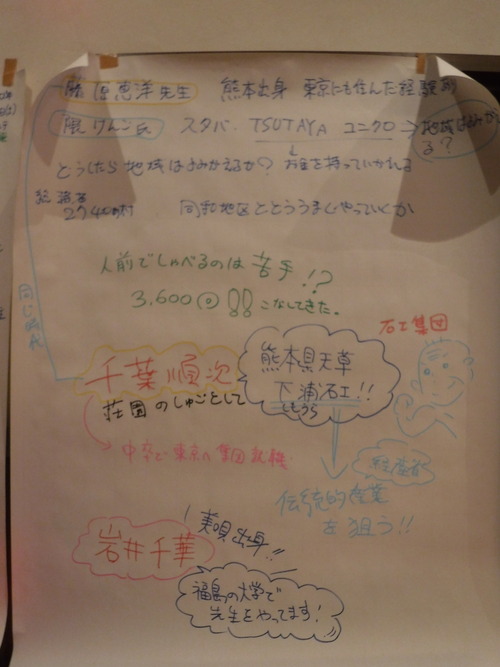 藤原恵洋先生 熊本出身 東京にも住んだ経験あり
隈けんご氏 スタバ・TSUTAYA ユニクロ→地域はよみがえる?
どうしたら地域はよみがえるか? お金を持っていかれる
274の村 同和地区とどううまくやっていくか
人前でしゃべるのは苦手!?
3,600回!!こなしてきた。
石工集団
熊本県天草
下浦石工!!
しもうら
千葉順次
荘園のしゅごとして
中卒で東京へ集団就職
経産省
伝統的産業
を狙う!!
美唄出身!!
岩井千華
福島の大学で
先生をやってます!